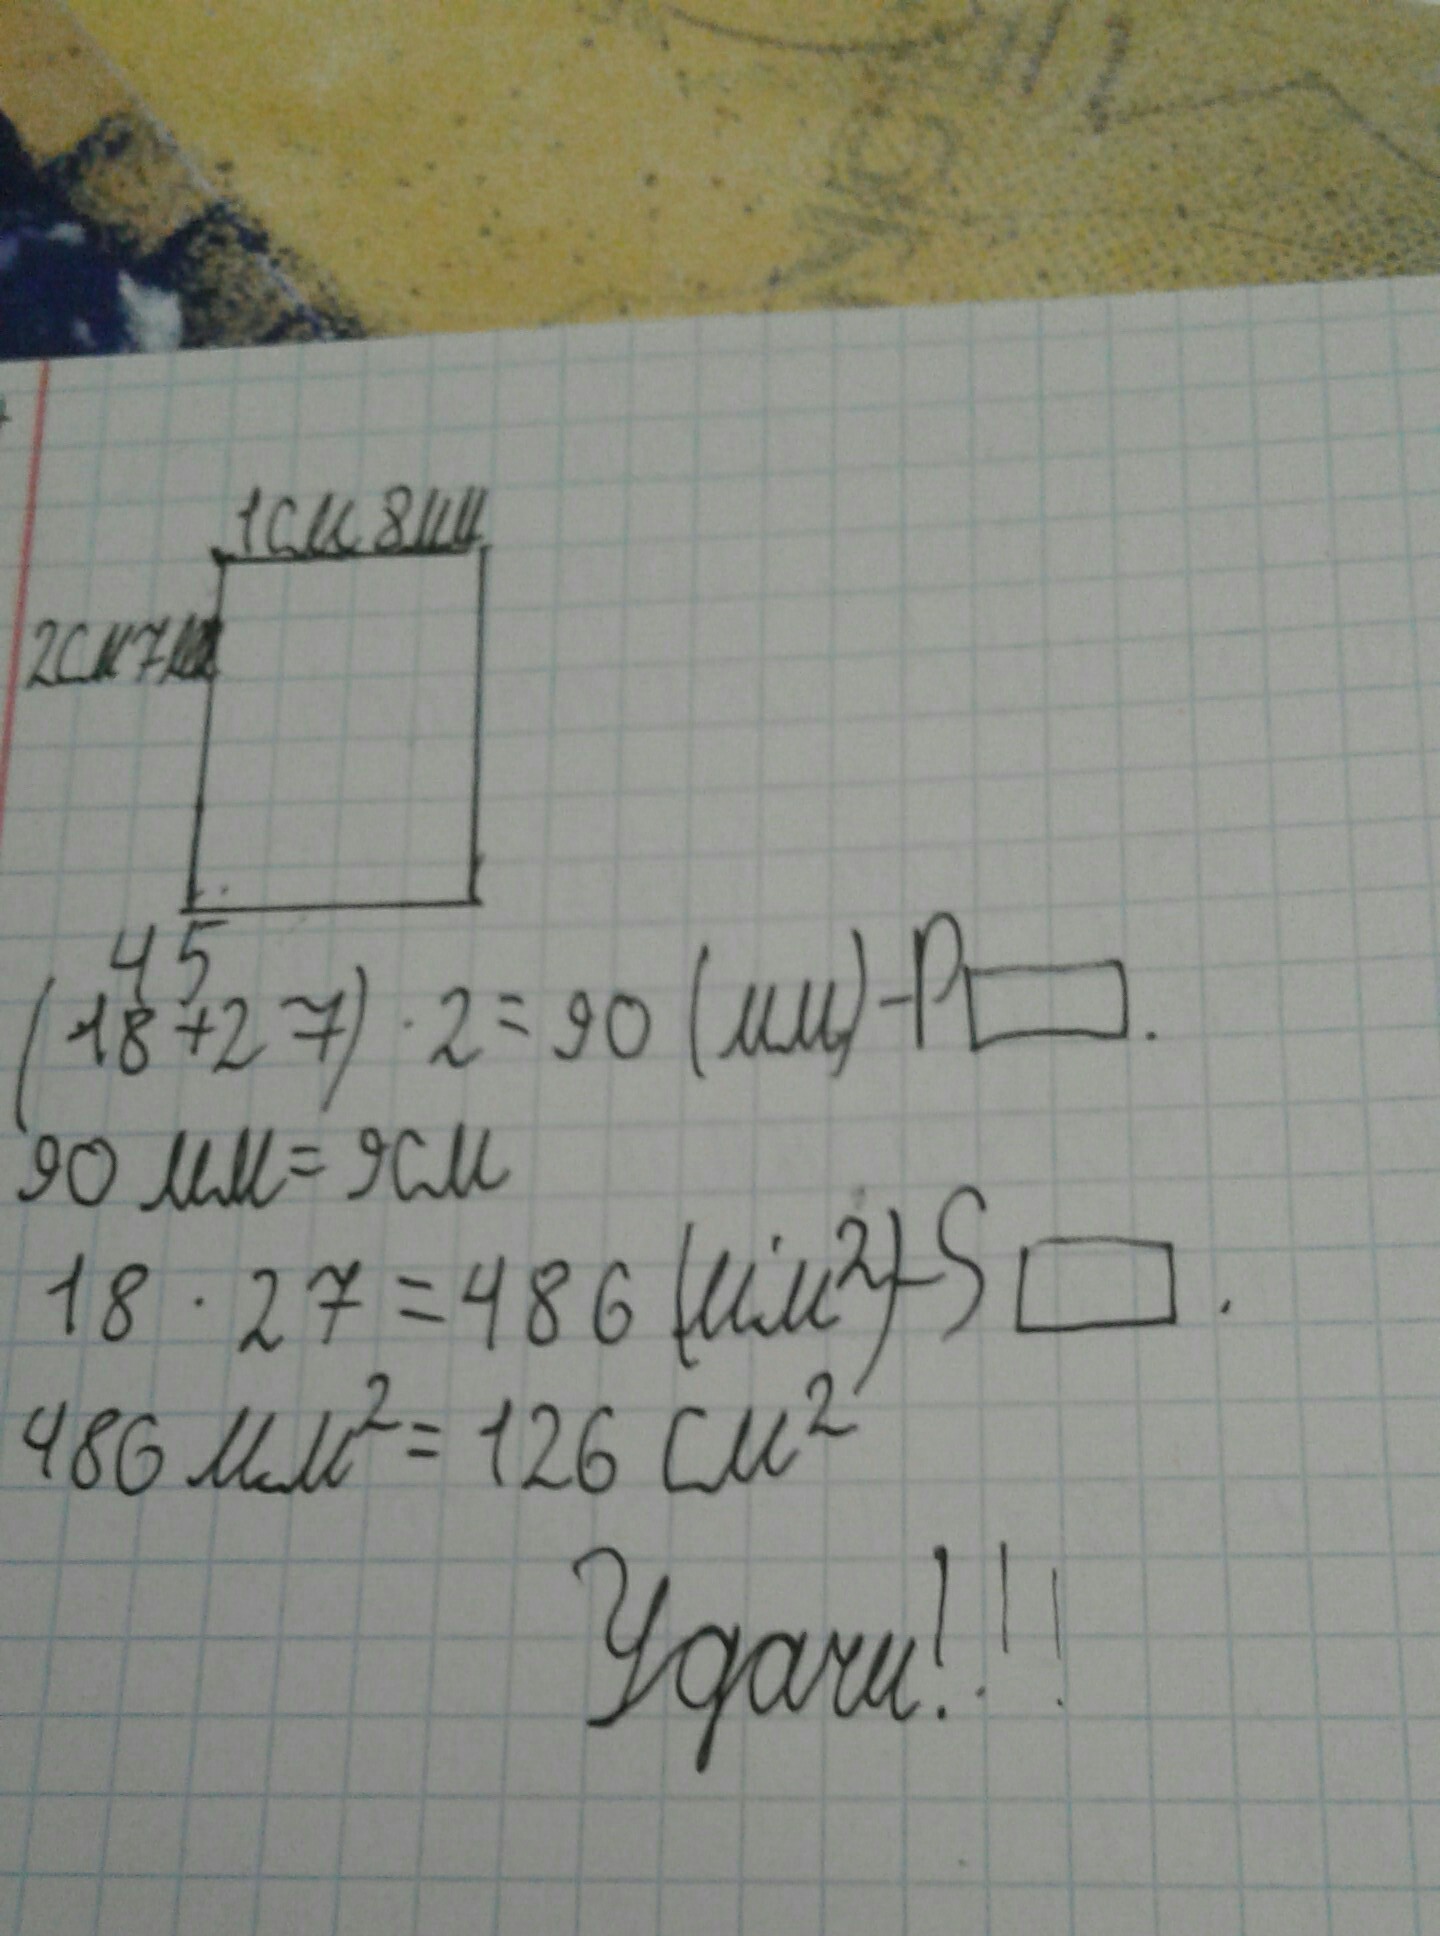 1см 8мм
2см 7мм
45
(18+27)·2=90 (мм)-P▭.
90 мм=9см
18·27=486 (мм²)-S▭.
486 мм²=126 см²
Удачи!!!